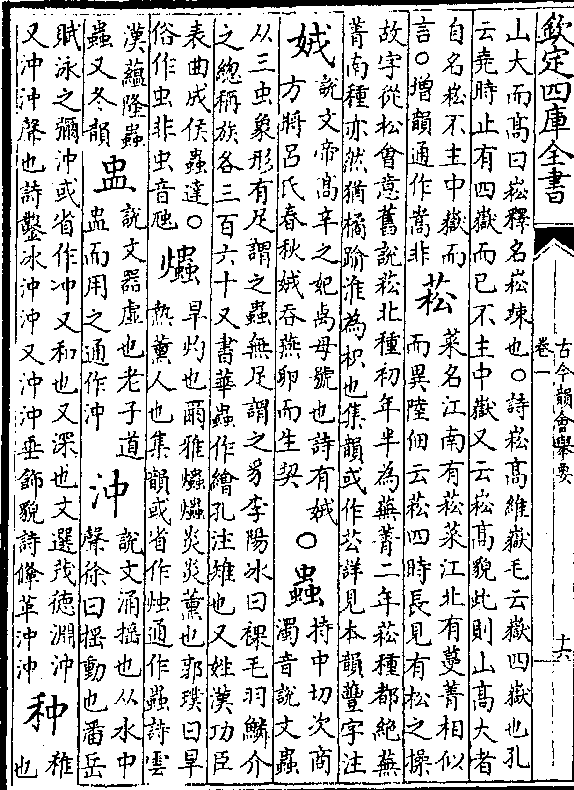 欽定四庫全書
古今韻會舉要
卷一
十六
山大而髙曰崧釋名崧竦也○詩崧髙維嶽毛云嶽四嶽也孔
云堯時止有四嶽而已不主中嶽又云崧髙貌此則山髙大者
自名崧不主中嶽而
言○增韻通作嵩非
菘
菜名江南有菘菜江北有蔓菁相似
而異陸佃云菘四時長見有松之操
故字從松會意舊說菘北種初年半為蕪菁二年菘種都絶蕪
菁南種亦然猶橘踰淮為枳也集韻或作詳見本韻豐字注
娀
說文帝髙辛之妃禼母號也詩有娀
方將吕氏春秋娀吞燕卵而生契
○蟲
持中切次商
濁音說文蟲
从三虫象形有足謂之蟲無足謂之豸李陽冰曰裸毛羽鱗介
之總稱族各三百六十又書華蟲作繪孔注雉也又姓漢功臣
表曲成侯蟲達○
俗作虫非虫音虺
爞
旱灼也爾雅爞爞炎炎薰也郭璞曰旱
熱薰人也集韻或省作烛通作蟲詩雲
漢蘊隆蟲
蟲又冬韻
盅
說文器虚也老子道
盅而用之通作沖
沖
說文涌摇也从水中
聲徐曰摇動也潘岳
賦泳之彌沖或省作冲又和也又深也文選茂德淵沖
又沖沖聲也詩鑿冰沖沖又沖沖垂飾貌詩鞗革沖沖
种
稚
也